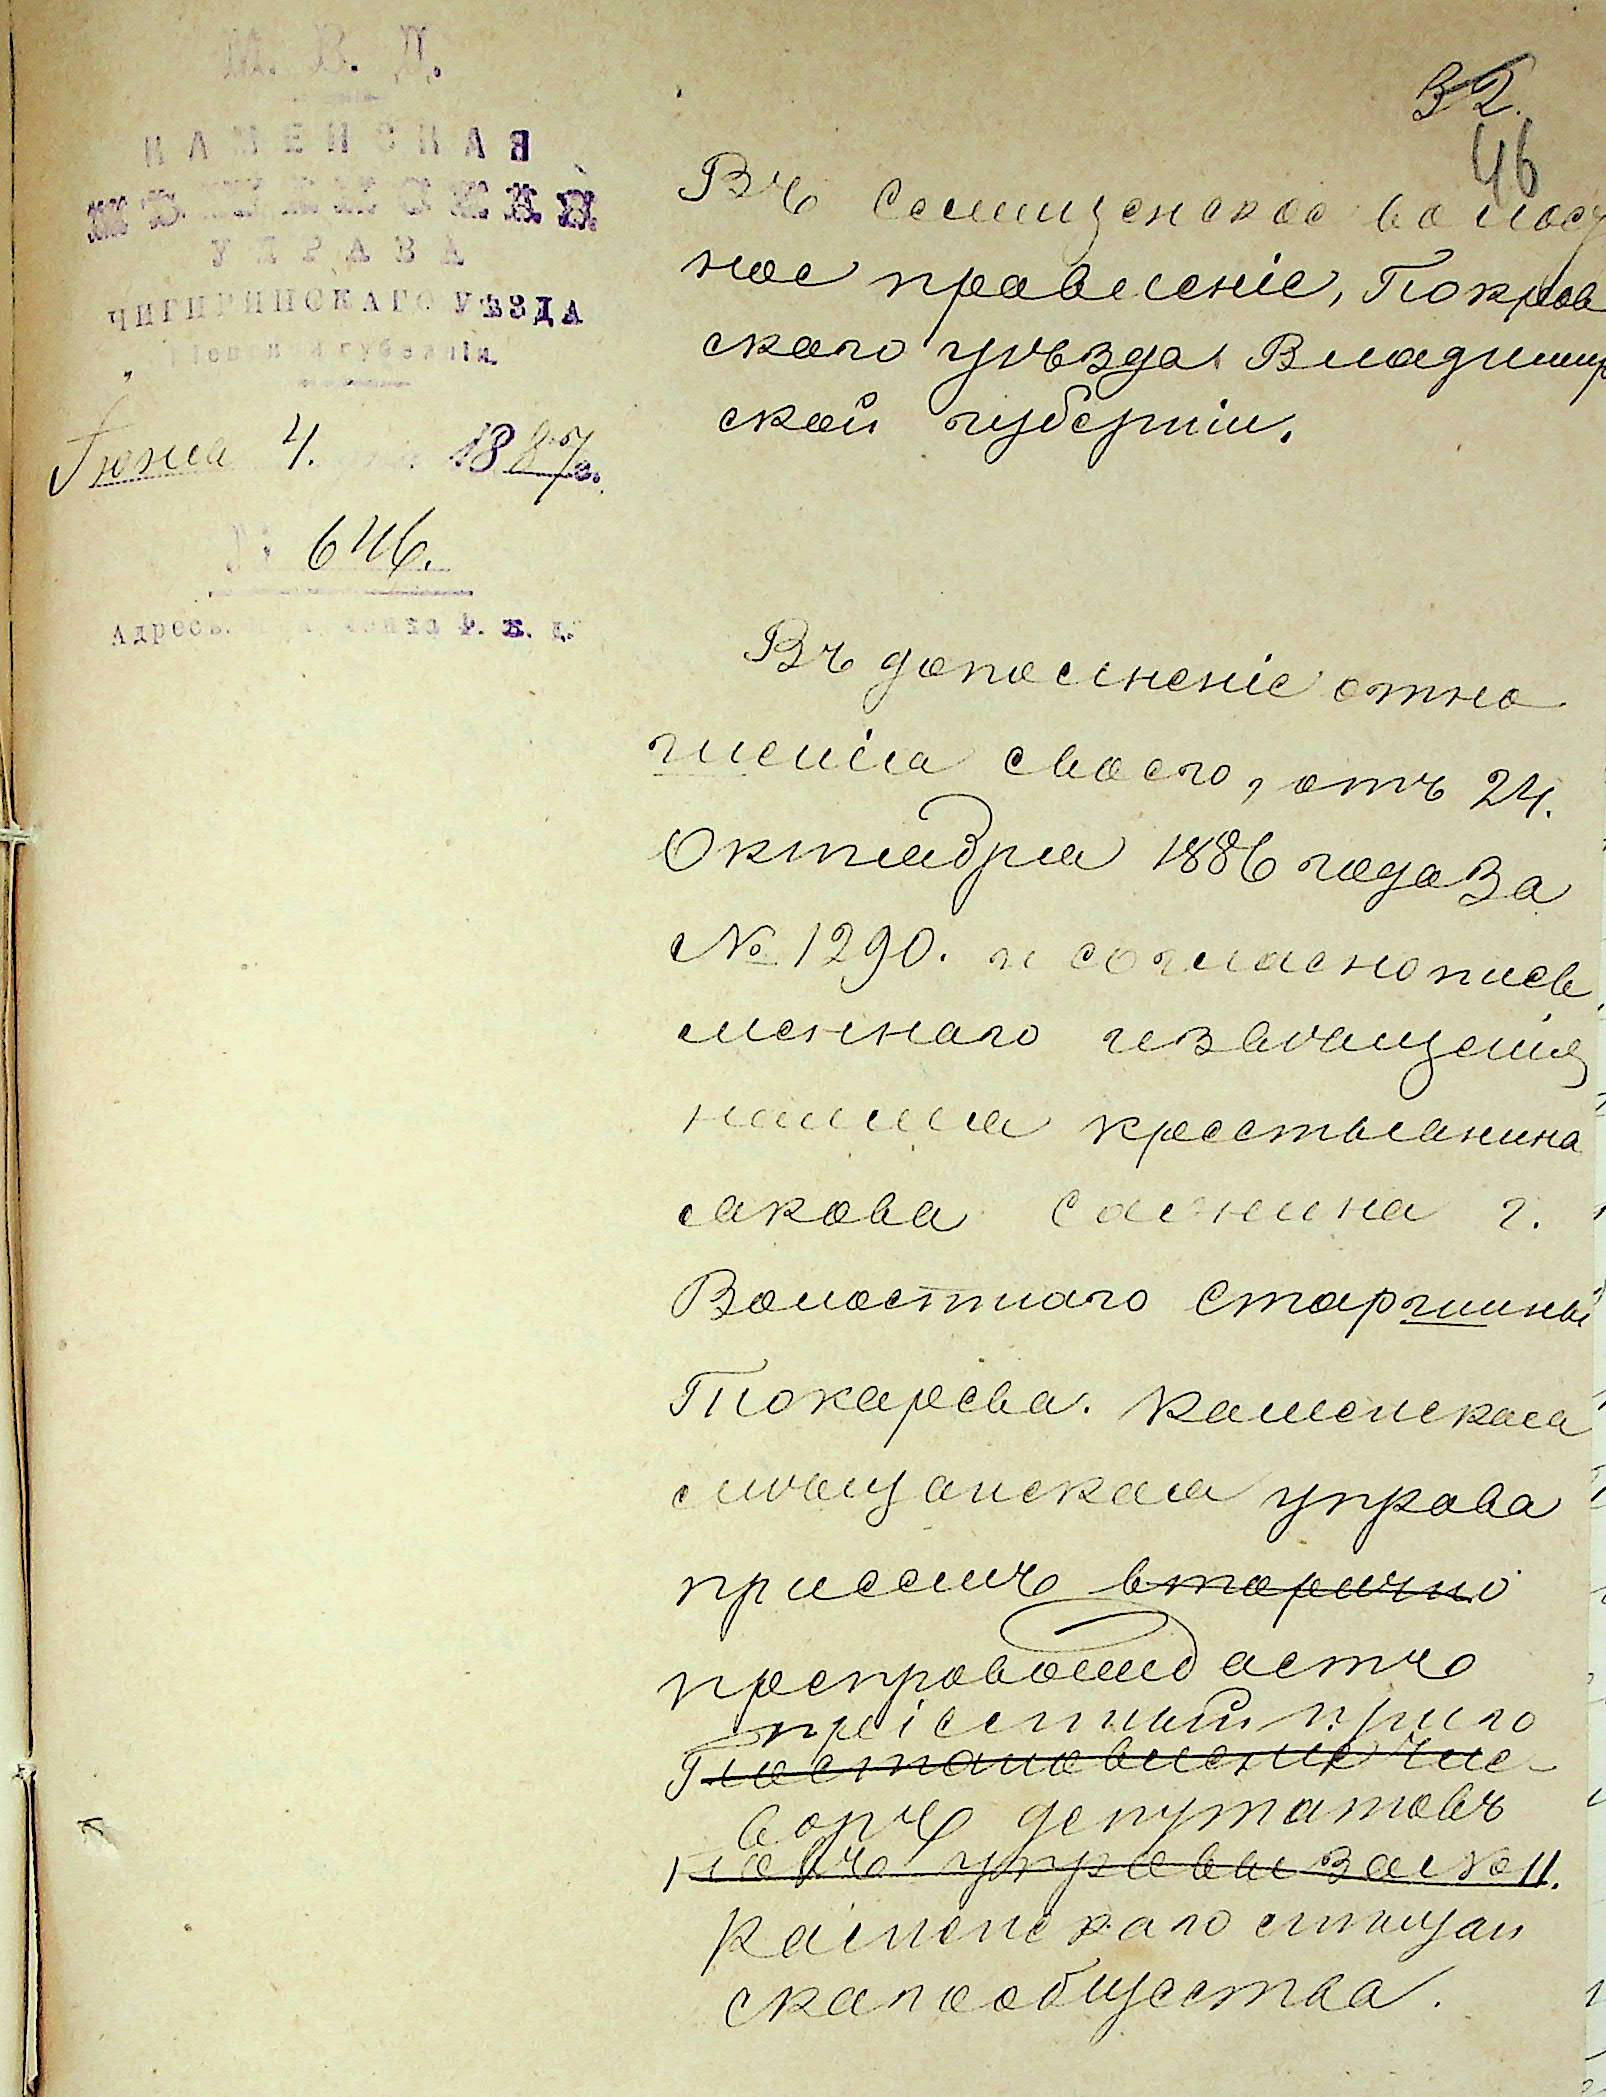 М. В. Д.
КАМЕНСКАЯ
МѢЩАНСКАЯ
УПРАВА
ЧИГИРИНСКАГО УѢЗДА
Кіевской губерніи.
Іюня 4. 1887 г.
№ 646.
Адресъ.
32.
46
Въ Селищенское волост
ное правленіе, Покров
скаго уѣзда Владимир
ской губерніи.
Въ дополненіе отно
шенія своего, отъ 24.
Октября 1886 года за
№ 1290. и согласно пись
меннаго извѣщенія
нашла крестьянина
якова г.
Волостнаго старшины
Токарева. Каменская
мѣщанская управа
присемъ вторично
препровождаетъ
пріемный приго
Постановленіе чле
воръ депутатовъ
новъ управы за № 11.
Каменскаго мѣщан
скаго общества.